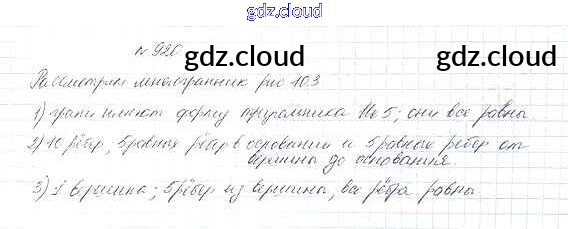 gdz.cloud
№ 920
gdz.cloud gdz.cloud
Рассмотрим многогранник рис 10.3
1) грани имеют форму треугольника Их 5; они все равны
2) 10 рёбер, 5 равных рёбер в основании и 5 равных рёбер от
вершины до основания.
3) 1 вершина; 5 рёбер из вершины, все рёбра равны
gdz.cloud